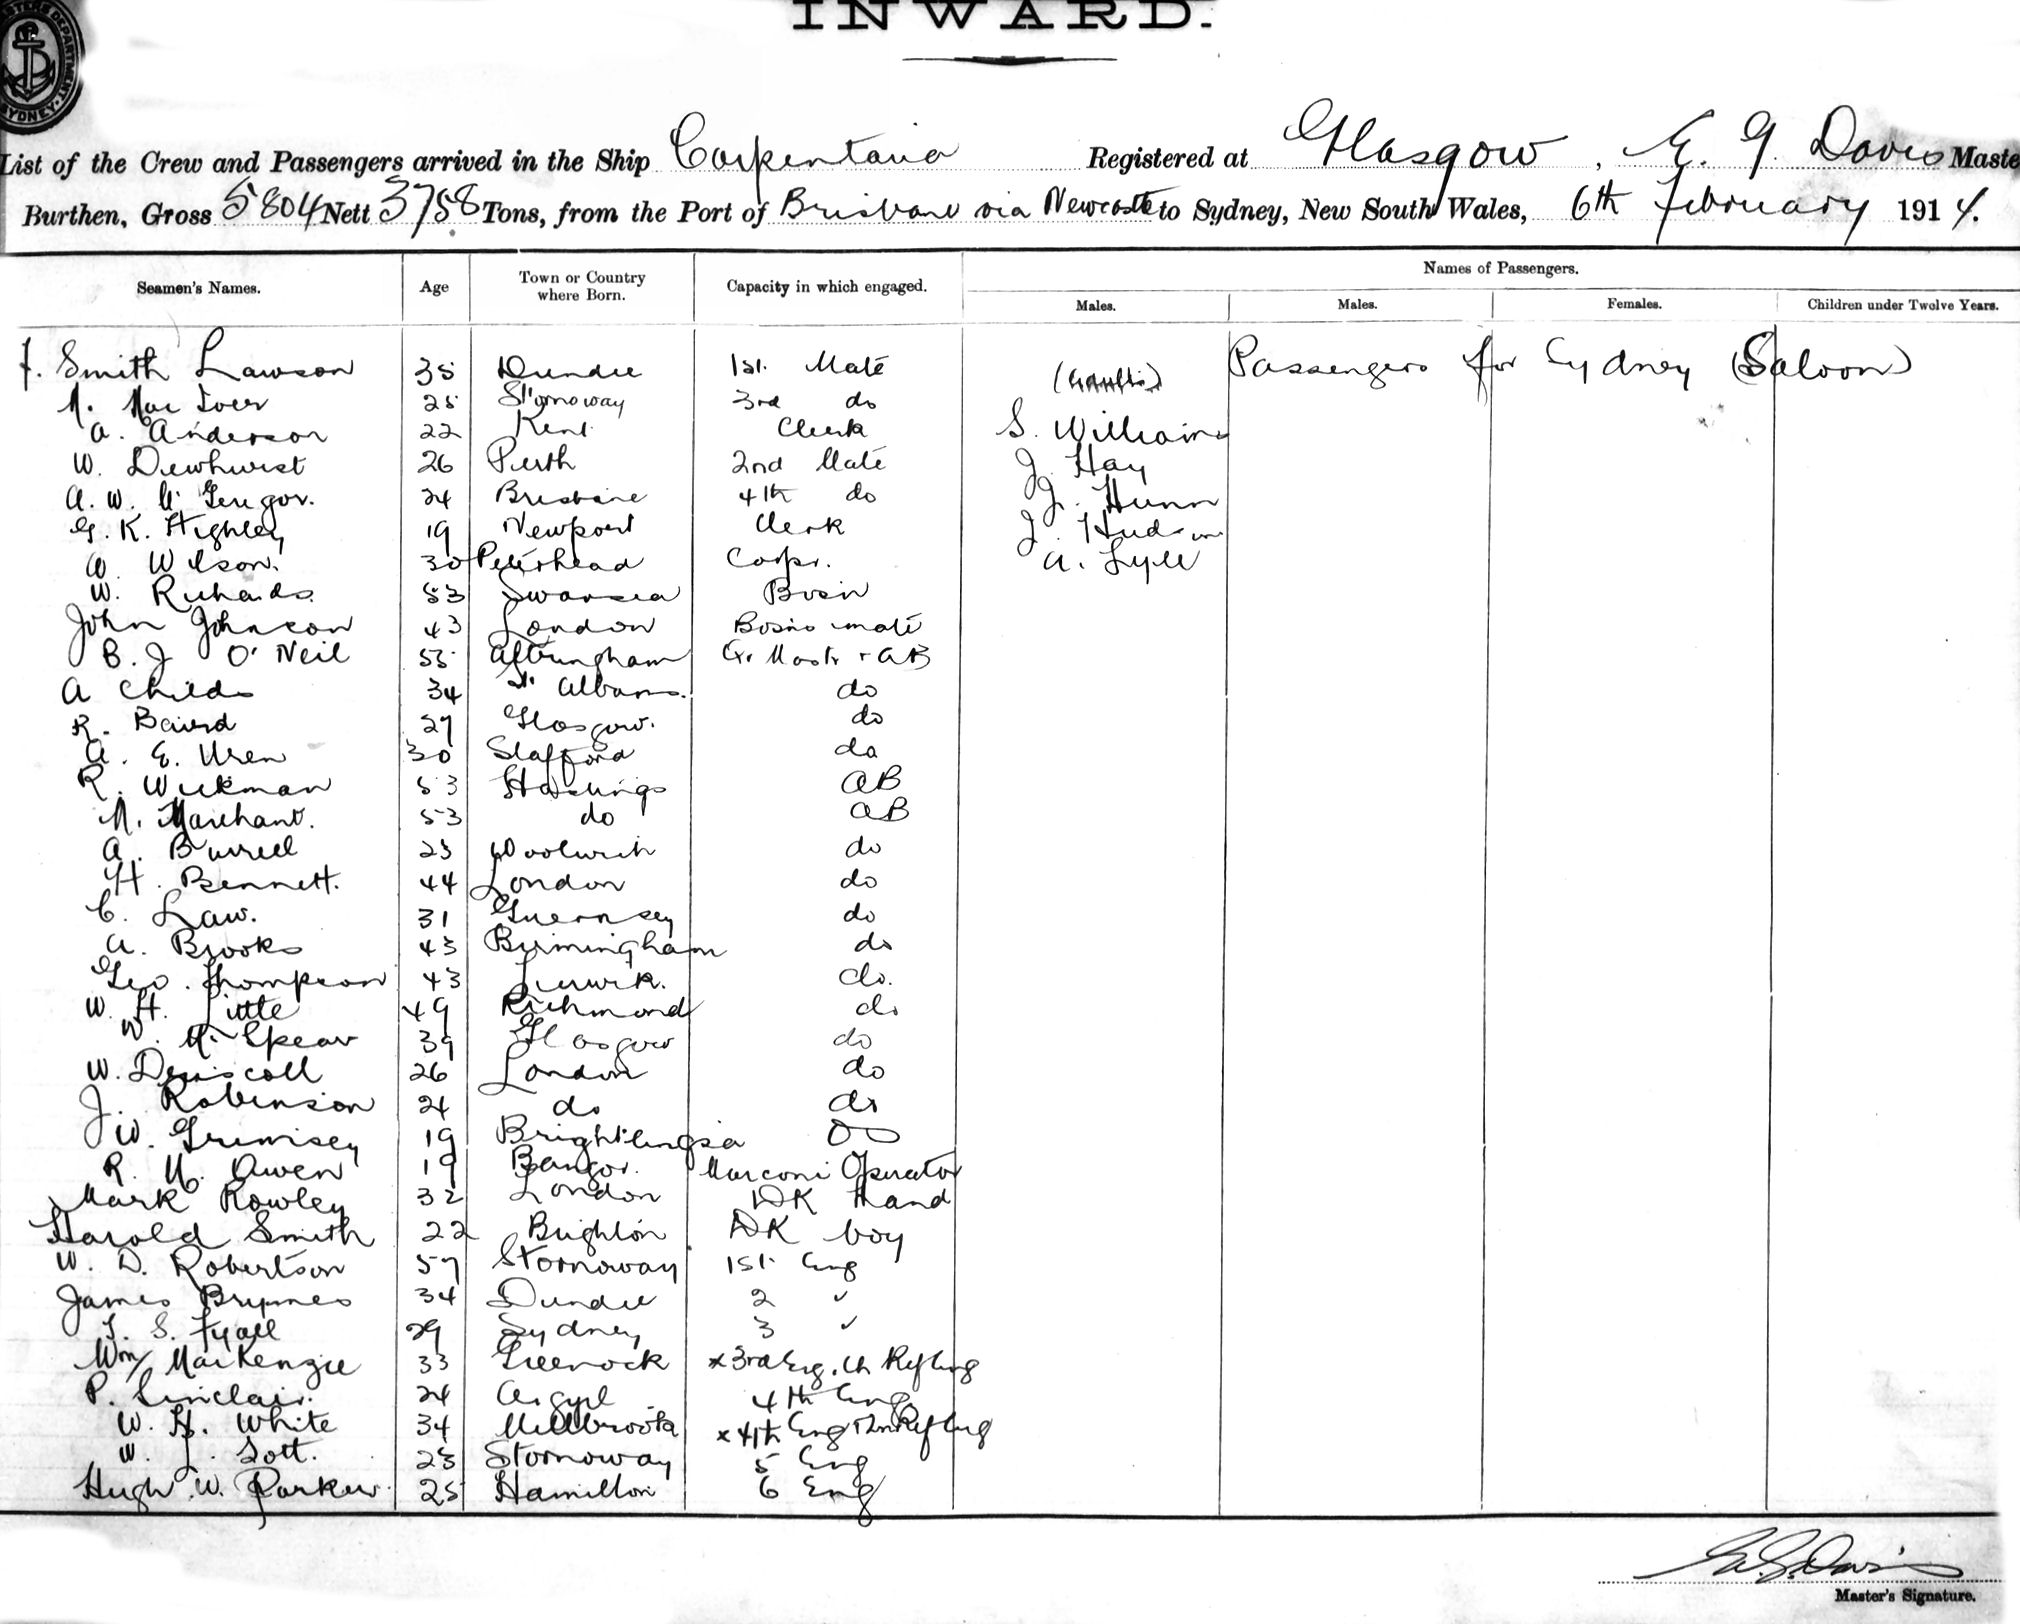 INWARD.
List of the Crew and Passengers arrived in the Ship Carpentaria Registered at Glasgow, E. G. Davis Maste
Burthen, Gross 5804 Nett 3758 Tons, from the Port of Brisbane via Newcastle to Sydney, New South Wales, 6th February 1914.
Names of Passengers.
Seamen's Names. Age Town or Country where Born. Capacity in which engaged. Males. Males. Females. Children under Twelve Years.
J. Smith Lawson 35 Dundee 1st. Mate Passengers for Sydney (Saloon)
N. MacIver 25 Stornoway 3rd do
A. Anderson 22 Kent Clerk S. Williams
W. Dewhurst 26 Perth 2nd Mate J. Hay
A. W. 24 Brisbane 4th do J. Hunn
G. K. Highley 19 Newport Clerk J. Hudson
A. Wilson. 30 Peterhead Carpr. A. Lyle
W. Richards. 53 Swansea Bosn
John Johnson 43 London Bosns mate
B. J. O'Neil 55 Altringham Qr Mastr + AB
A Childs 34 St Albans. do
R. Baird 27 Glasgow. do
A. E. Uren 30 Stafford do
R. Wickman 53 Hastings AB
N. Marchant. 53 do AB
A. Burrell 25 Woolwich do
H. Bennett. 44 London do
C. Law. 31 Guernsey do
A. Brooks 43 Birmingham do
Geo. Thompson 43 Lerwick. do.
W. H. Little 49 Richmond do
W. Spear 39 Glasgow do
W. Driscoll 26 London do
J. Robinson 24 do do
W. Grimsey 19 Brightlingsa OS
R. Owen 19 Bangor. Marconi Operator
Mark Rowley 32 London DK Hand
Harold Smith 22 Brighton DK boy
W. D. Robertson 57 Stornoway 1st. Eng
James Brymes 34 Dundee 2 "
T. S. Fyall 29 Sydney 3 "
Wm MacKenzie 33 Greenock x 3rd Eng. Ch Refgeng
P. Sinclair. 24 Argyl 4th Eng.
W. H. White 34 Millbrook x 4th Eng + 2n Refgeng
W. J. Tott. 25 Stornoway 5 Eng
Hugh W. Parker 25 Hamilton 6 Eng
E. G. Davis
Master's Signature.